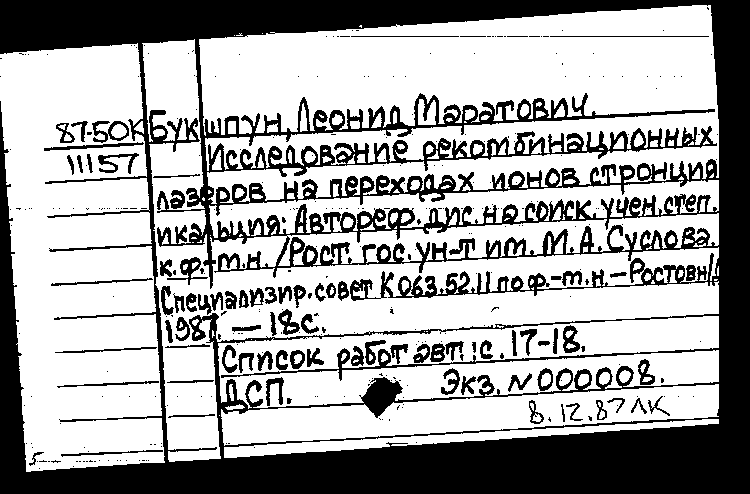 87-50К Букшпун, Леонид Маратович.
11157 Исследование рекомбинационных
лазеров на переходах ионов стронция
и кальция: Автореф. дис. на соиск. учен. степ.
к.ф.-т.н. /Рост. гос. ун-т им. М.А. Суслова.
Специализир. совет К 063.52.11 по ф.-т.н. — Ростов н/Д
1987. — 18 с.
Список работ авт.: с. 17-18.
ДСП. Экз. N 000008.
8.12.87 ЛК